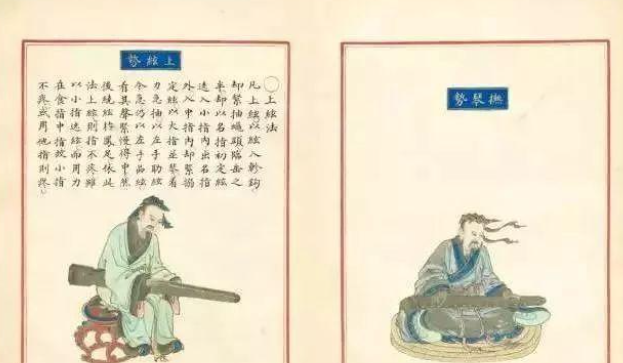 撫琴勢
上絃勢
〇上絃法
凡上絃以絃入軫鈎
却緊抽蠅頭臨岳之
却以名指初定絃
入小指內出名指
外入中指內却緊搦
定絃以大指並琴着
力急抽以左手助絃
令急仍以左手品絃
看其聲緊慢得中然
後繞絃於鳳足依此
法上絃則指不疼雖
以小指遶絃而用力
在食指中指故小指
不疼或用他指則疼